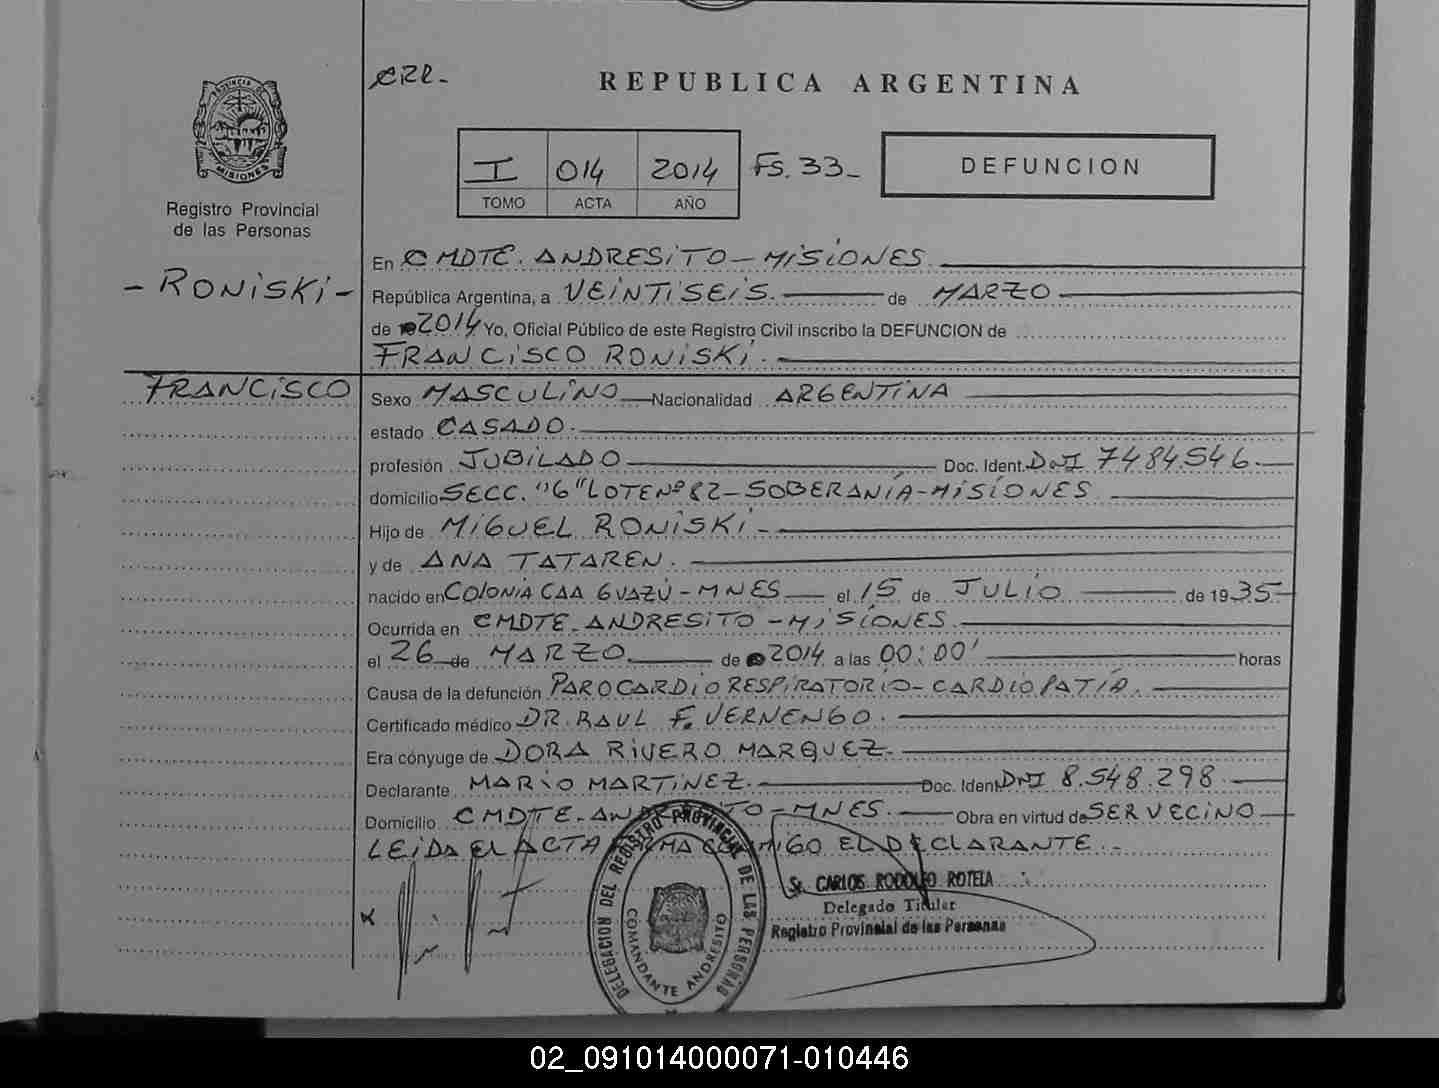 CRR-
REPUBLICA ARGENTINA
PROVINCIA DE
MISIONES
Registro Provincial
de las Personas
I 014 2014 Fs. 33-
TOMO ACTA AÑO
DEFUNCION
- RONiSKi -
FRANCiSCO
En CMDTE. ANDRESiTO - MiSiONES
República Argentina, a VEINTISEIS. de MARZO
de 2014 Yo, Oficial Público de este Registro Civil inscribo la DEFUNCION de
FRANCiSCO RONiSKi.
Sexo MASCULiNO Nacionalidad ARGENTiNA
estado CASADO.
profesión JUBILADO Doc. Ident. DNI 7484.546.
domicilio SECC. "6" LOTE Nº 82 - SOBERANÍA - MiSiONES
Hijo de MiGUEL RONiSKi -
y de ANA TATAREN.
nacido en COLONiA CAA GUAZÚ - MNES el 15 de JULIO de 1935-
Ocurrida en CMDTE. ANDRESiTO - MiSiONES.
el 26 de MARZO de 2014 a las 00:00' horas
Causa de la defunción PAROCARDIORESPIRATORIO - CARDIOPATÍA.
Certificado médico DR. RAUL F. VERNENGO.
Era cónyuge de DORA RiVERO MARQUEZ.
Declarante MARiO MARTiNEZ. Doc. Ident DNI 8.548.298
Domicilio CMDTE. ANDRESITO - MNES. Obra en virtud de SER VECiNO
LEiDA El ACTA FiRMA CONMIGO EL DECLARANTE.-
Sr. CARLOS RODOLFO ROTELA
Delegado Titular
Registro Provincial de las Personas
DELEGACION DEL REGISTRO PROVINCIAL DE LAS PERSONAS
COMANDANTE ANDRESITO
02_091014000071-010446